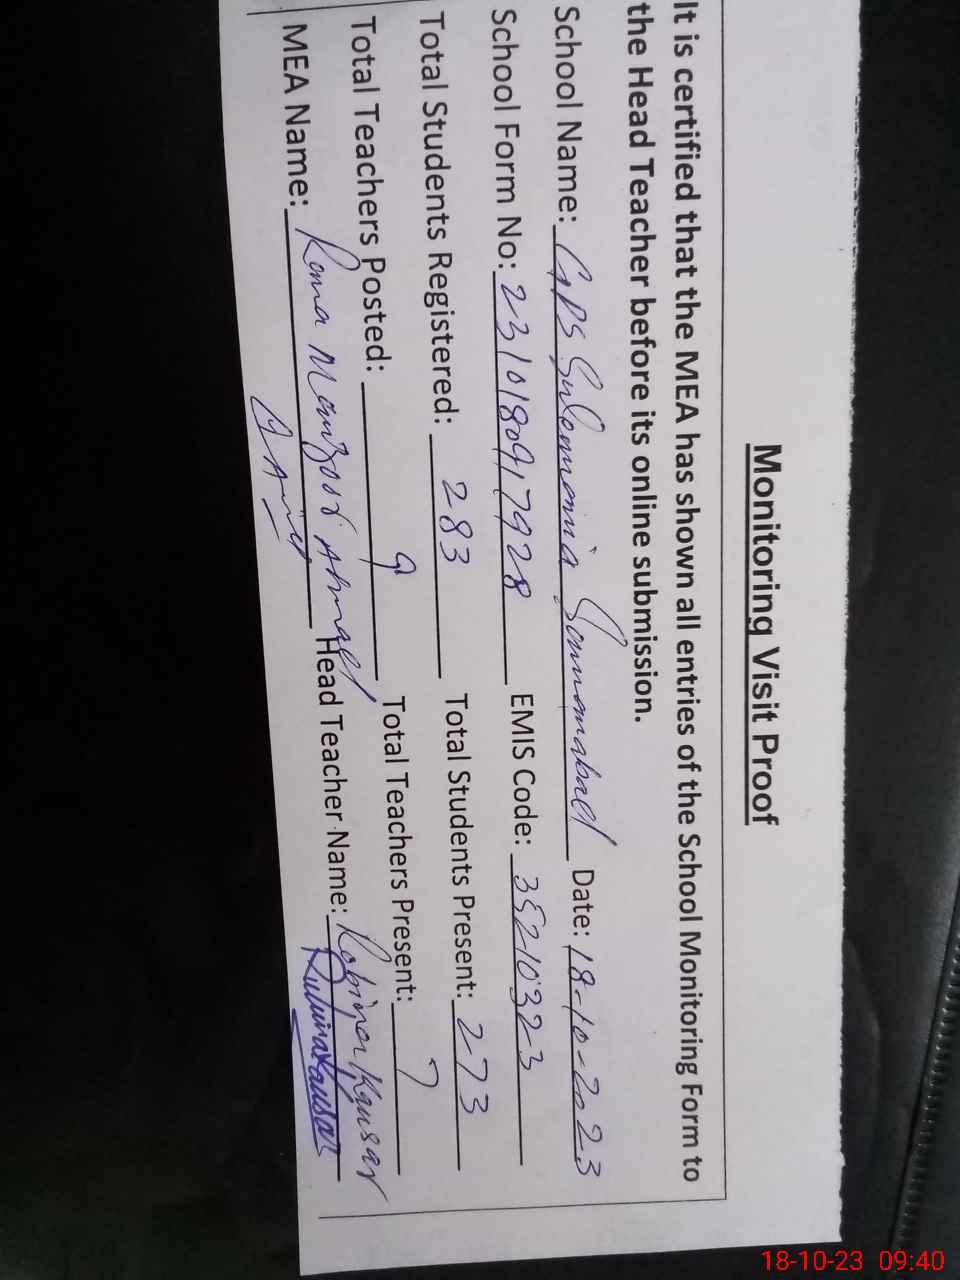 Monitoring Visit Proof
It is certified that the MEA has shown all entries of the School Monitoring Form to
the Head Teacher before its online submission.
School Name: GPS Sulemania Sammanabad Date: 18-10-2023
School Form No: 231018091 7928 EMIS Code: 35210323
Total Students Registered: 283 Total Students Present: 273
Total Teachers Posted: 9 Total Teachers Present: 7
MEA Name: Rana Manzoor Ahmad Head Teacher Name: Robina Kausar
Rubina Kausar
18-10-23 09:40